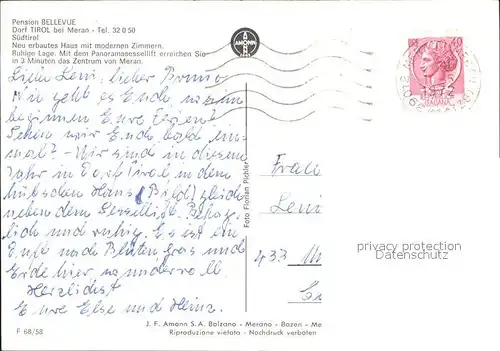 Pension BELLEVUE
Dorf TIROL bei Meran - Tel. 32 0 50
Südtirol
Neu erbautes Haus mit modernen Zimmern.
Ruhige Lage. Mit dem Panoramasessellift erreichen Sie
in 3 Minuten das Zentrum von Meran.
AMONN
ITALIANE
1972
Liebe Leni, lieber Bruno
Wie geht es Euch, wann
beginnen Eure Ferien?
Sehen wir Euch bald ein-
mal? - Wir sind in diesem
Jahr in Dorf Tirol in dem
hübschen Haus (Bild) gleich
neben dem Sessellift. Behag-
lich und ruhig. Es ist ein
Duft nach Blüten, Gras und
Erde hier, so wundervoll.
Herzlichst
Eure Else und Heinz.
Foto Florian Pichler
Leni
433
privacy protection
Datenschutz
J. F. Amonn S.A. Bolzano - Merano - Bozen - Me
Riproduzione vietata - Nachdruck verboten
F 68/58